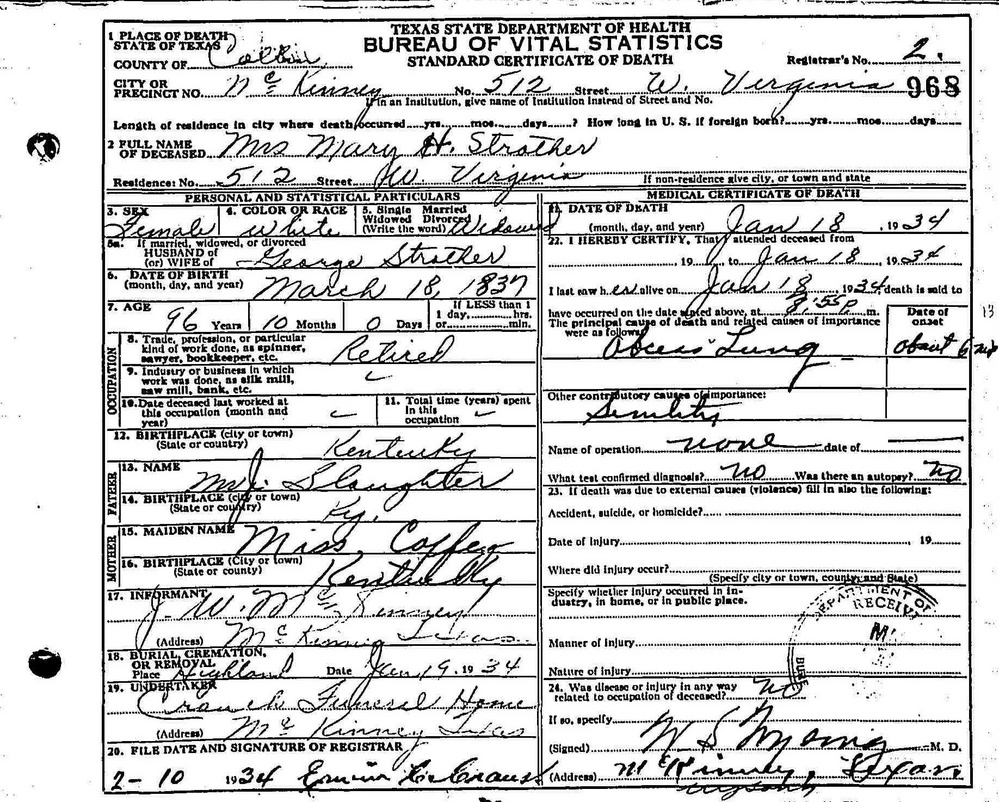 TEXAS STATE DEPARTMENT OF HEALTH
BUREAU OF VITAL STATISTICS
STANDARD CERTIFICATE OF DEATH
1 PLACE OF DEATH
STATE OF TEXAS
COUNTY OF Collin
Registrar's No. 2.
CITY OR PRECINCT NO. McKinney No. 512 Street W. Virginia 968
If in an Institution, give name of Institution instead of Street and No.
Length of residence in city where death occurred yrs. mos. days ? How long in U. S. if foreign born? yrs. mos. days
2 FULL NAME OF DECEASED Mrs Mary H. Strother
Residence: No. 512 Street W. Virginia If non-residence give city, or town and state
PERSONAL AND STATISTICAL PARTICULARS
3. SEX Female 4. COLOR OR RACE White 5. Single Married Widowed Divorced (Write the word) Widowed
5a. If married, widowed, or divorced
HUSBAND of
(or) WIFE of George Strother
6. DATE OF BIRTH
(month, day, and year) March 18, 1837
7. AGE 96 Years 10 Months 0 Days If LESS than 1 day, hrs. or min.
OCCUPATION
8. Trade, profession, or particular kind of work done, as spinner, sawyer, bookkeeper, etc. Retired
9. Industry or business in which work was done, as silk mill, saw mill, bank, etc.
10. Date deceased last worked at this occupation (month and year)
11. Total time (years) spent in this occupation
12. BIRTHPLACE (city or town)
(State or country) Kentucky
FATHER
13. NAME Slaughter
14. BIRTHPLACE (city or town)
(State or country) Ky.
MOTHER
15. MAIDEN NAME Miss Coffer
16. BIRTHPLACE (City or town)
(State or county) Kentucky
17. INFORMANT J. W. McKinney
(Address) McKinney Texas
18. BURIAL, CREMATION, OR REMOVAL
Place Highland Date Jan 19. 1934
19. UNDERTAKER
Crouch Funeral Home
(Address) McKinney Texas
20. FILE DATE AND SIGNATURE OF REGISTRAR
2-10 1934
MEDICAL CERTIFICATE OF DEATH
21. DATE OF DEATH
(month, day, and year) Jan 18, 1934
22. I HEREBY CERTIFY, That I attended deceased from
, 19 , to Jan 18, 1934
I last saw her alive on Jan 18, 1934 death is said to
have occurred on the date stated above, at 8:55 p m.
The principal cause of death and related causes of importance were as follows:
Date of onset
Abcess Lung
Other contributory causes of importance:
Senility
Name of operation none date of
What test confirmed diagnosis? no Was there an autopsy? no
23. If death was due to external causes (violence) fill in also the following:
Accident, suicide, or homicide?
Date of injury , 19
Where did injury occur?
(Specify city or town, county, and State)
Specify whether injury occurred in industry, in home, or in public place.
Manner of injury
Nature of injury
24. Was disease or injury in any way related to occupation of deceased? no
If so, specify
(Signed) M. D.
(Address) McKinney, Texas
DEPARTMENT OF
RECEIV
13